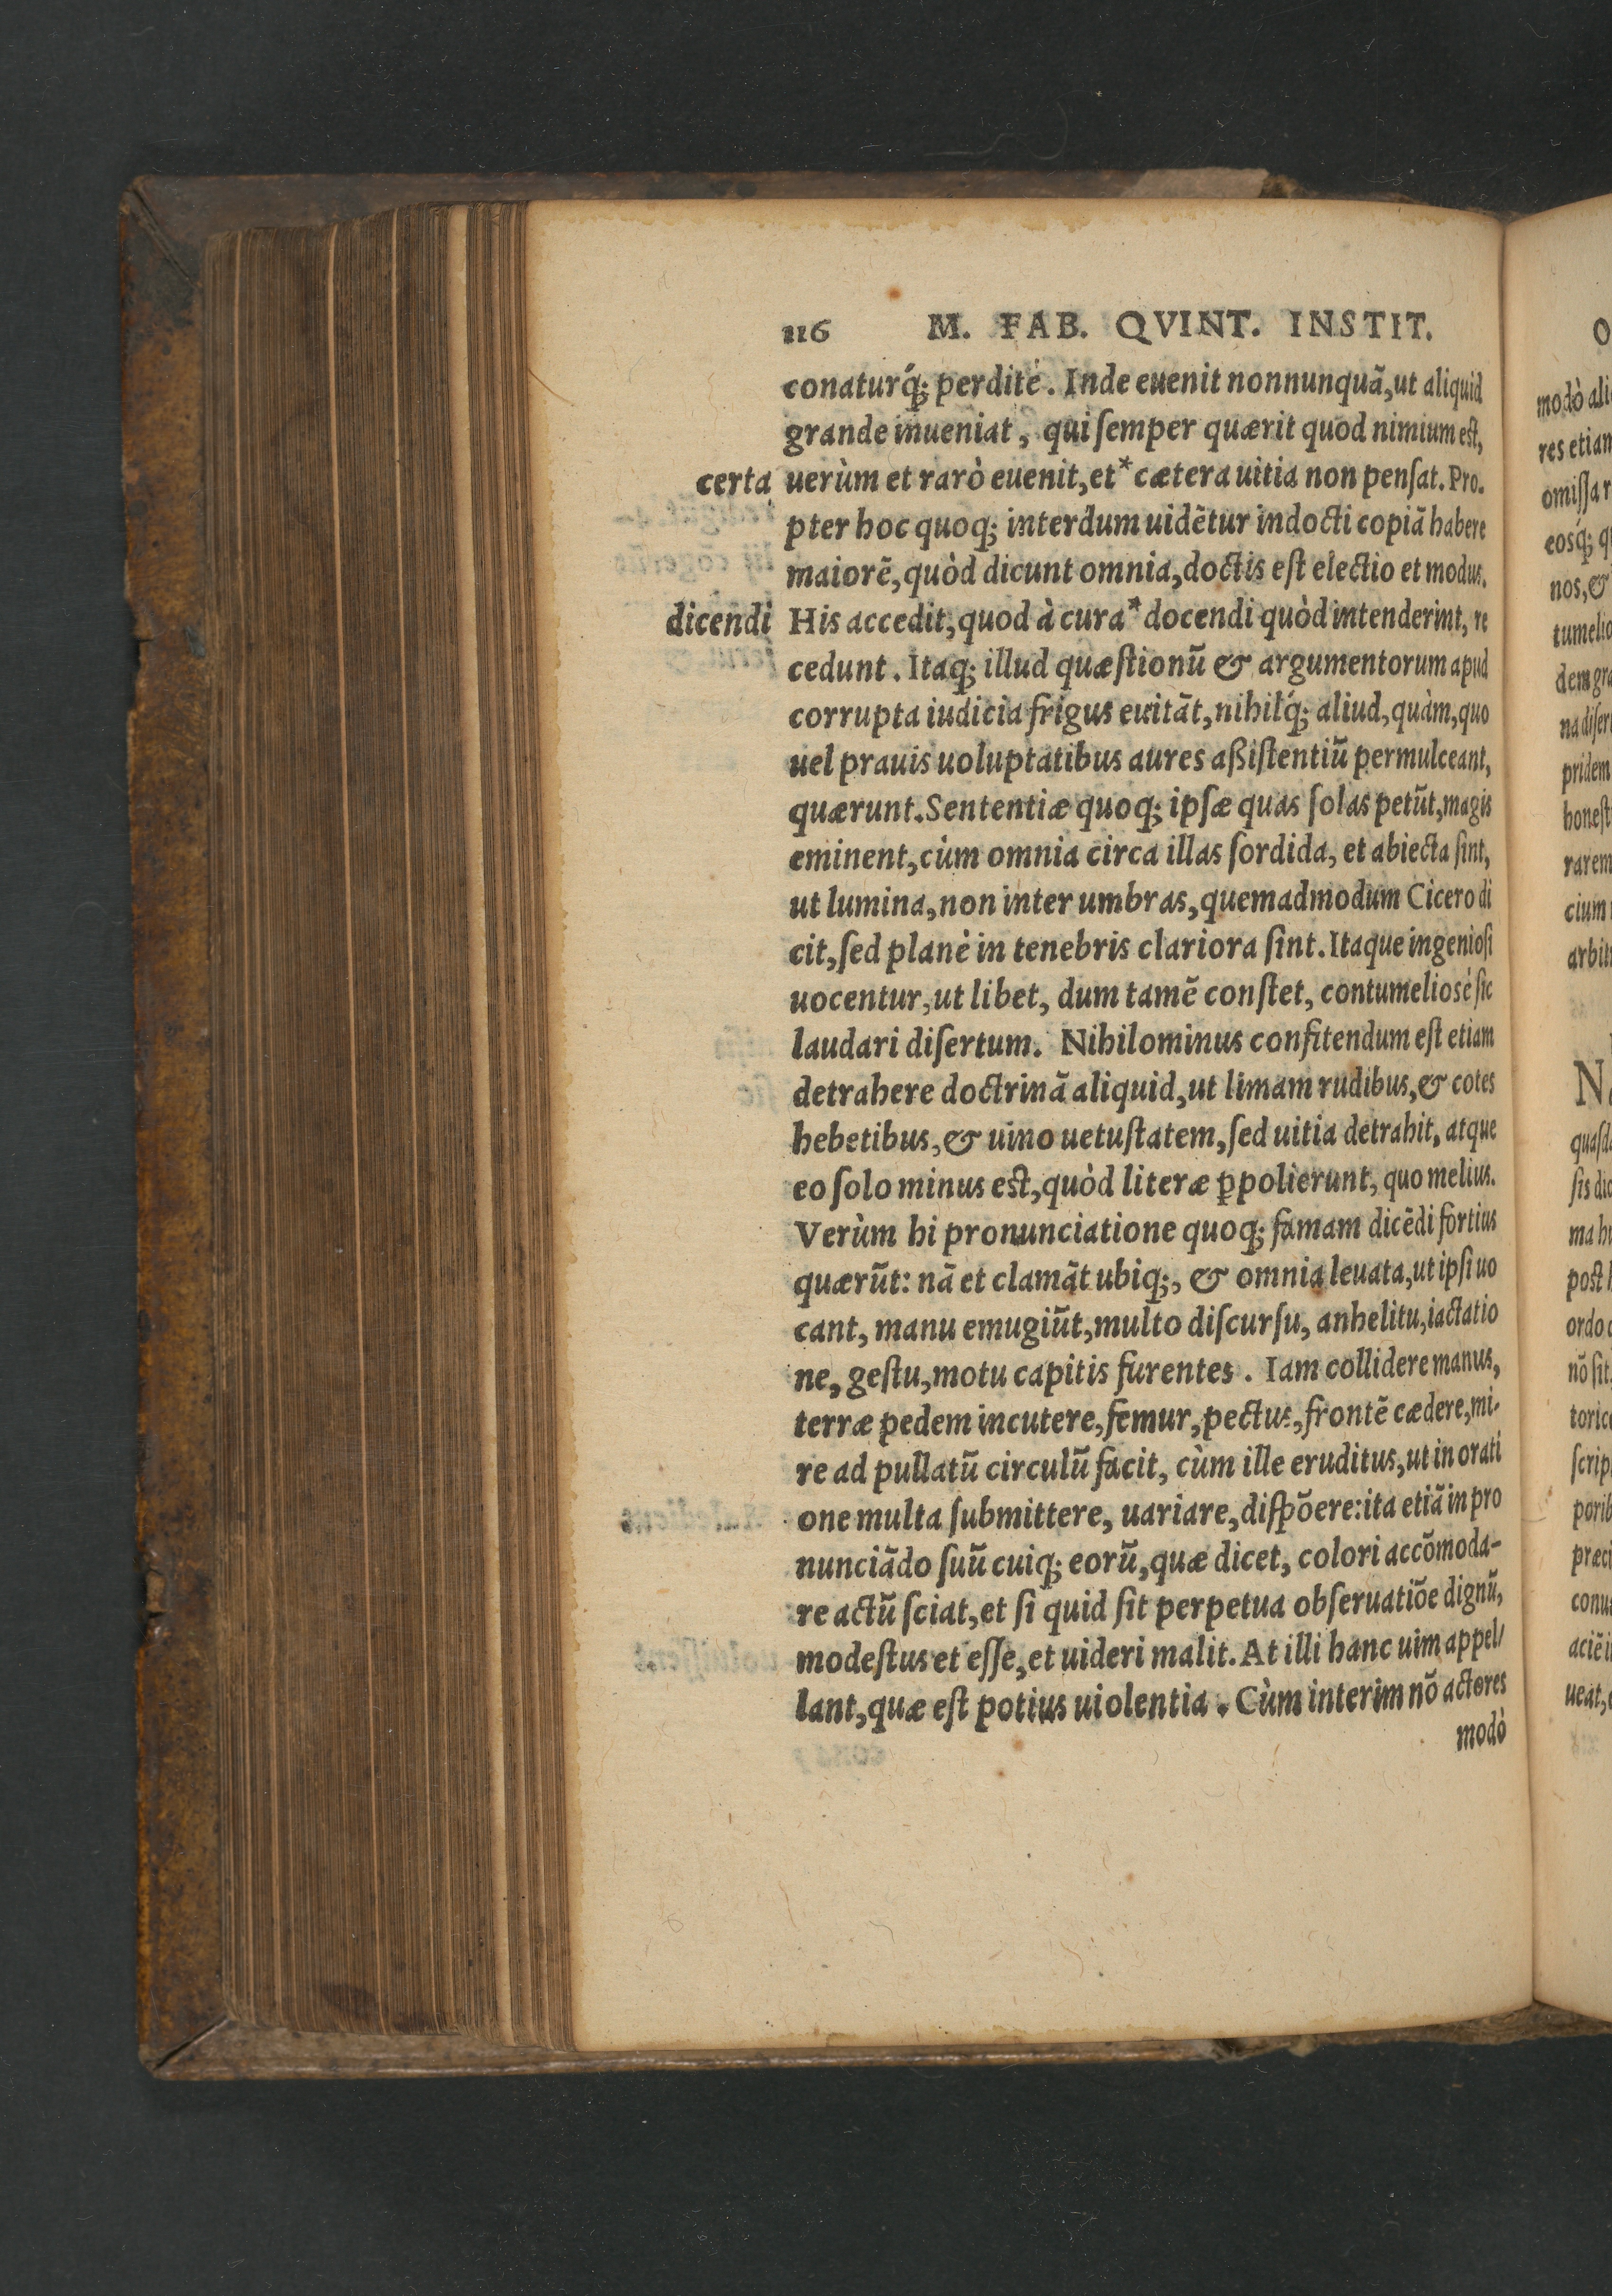 116 M. FAB. QVINT. INSTIT.
conaturq́; perditè. Inde euenit nonnunquā, ut aliquid
grande inueniat, qui ſemper quærit quod nimium eſt,
certa uerùm et rarò euenit, et* cætera uitia non penſat. Pro-
pter hoc quoq; interdum uidētur indocti copiā habere
maiorē, quòd dicunt omnia, doctis eſt electio et modus.
dicendi His accedit, quod à cura* docendi quòd intenderint, re
cedunt. Itaq; illud quæſtionū & argumentorum apud
corrupta iudicia frigus euitāt, nihilq́; aliud, quàm, quo
uel prauis uoluptatibus aures aßiſtentiū permulceant,
quærunt. Sententiæ quoq; ipſæ quas ſolas petūt, magis
eminent, cùm omnia circa illas ſordida, et abiecta ſint,
ut lumina, non inter umbras, quemadmodum Cicero di
cit, ſed planè in tenebris clariora ſint. Itaque ingenioſi
uocentur, ut libet, dum tamē conſtet, contumeliosè ſic
laudari diſertum. Nihilominus confitendum eſt etiam
detrahere doctrinā aliquid, ut limam rudibus, & cotes
hebetibus, & uino uetuſtatem, ſed uitia detrahit, atque
eo ſolo minus est, quòd literæ ꝑpolierunt, quo melius.
Verùm hi pronunciatione quoq; famam dicēdi fortius
quærūt: nā et clamāt ubiq;, & omnia leuata, ut ipſi uo
cant, manu emugiūt, multo diſcurſu, anhelitu, iactatio
ne, geſtu, motu capitis furentes. Iam collidere manus,
terræ pedem incutere, femur, pectus, frontē cædere, mi-
re ad pullatū circulū facit, cùm ille eruditus, ut in orati
one multa ſubmittere, uariare, diſpōere: ita etiā in pro
nunciādo ſuū cuiq; eorū, quæ dicet, colori accōmoda-
re actū ſciat, et ſi quid ſit perpetua obſeruatiōe dignū,
modeſtus et eſſe, et uideri malit. At illi hanc uim appel/
lant, quæ eſt potius uiolentia. Cùm interim nō actores
modò